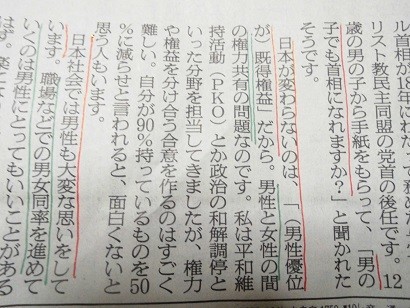 ル首相が18年にわた
リスト教民主同盟の党首の後任です。12
歳の男の子から手紙をもらって、「男の
子でも首相になれますか？」と聞かれた
そうです。
日本が変わらないのは、「（男性優位
が）既得権益」だから。男性と女性の間
の権力共有の問題なのです。私は平和維
持活動（PKO）とか政治の和解調停と
いった分野を担当してきましたが、権力
や権益を分け合う合意を作るのはすごく
難しい。自分が90％持っているものを50
％に減らせと言われると、面白くないと
思う人もいます。
日本社会では男性も大変な思いをして
います。職場などでの男女同率を進めて
いくのは男性にとってもいいことがある
はず。